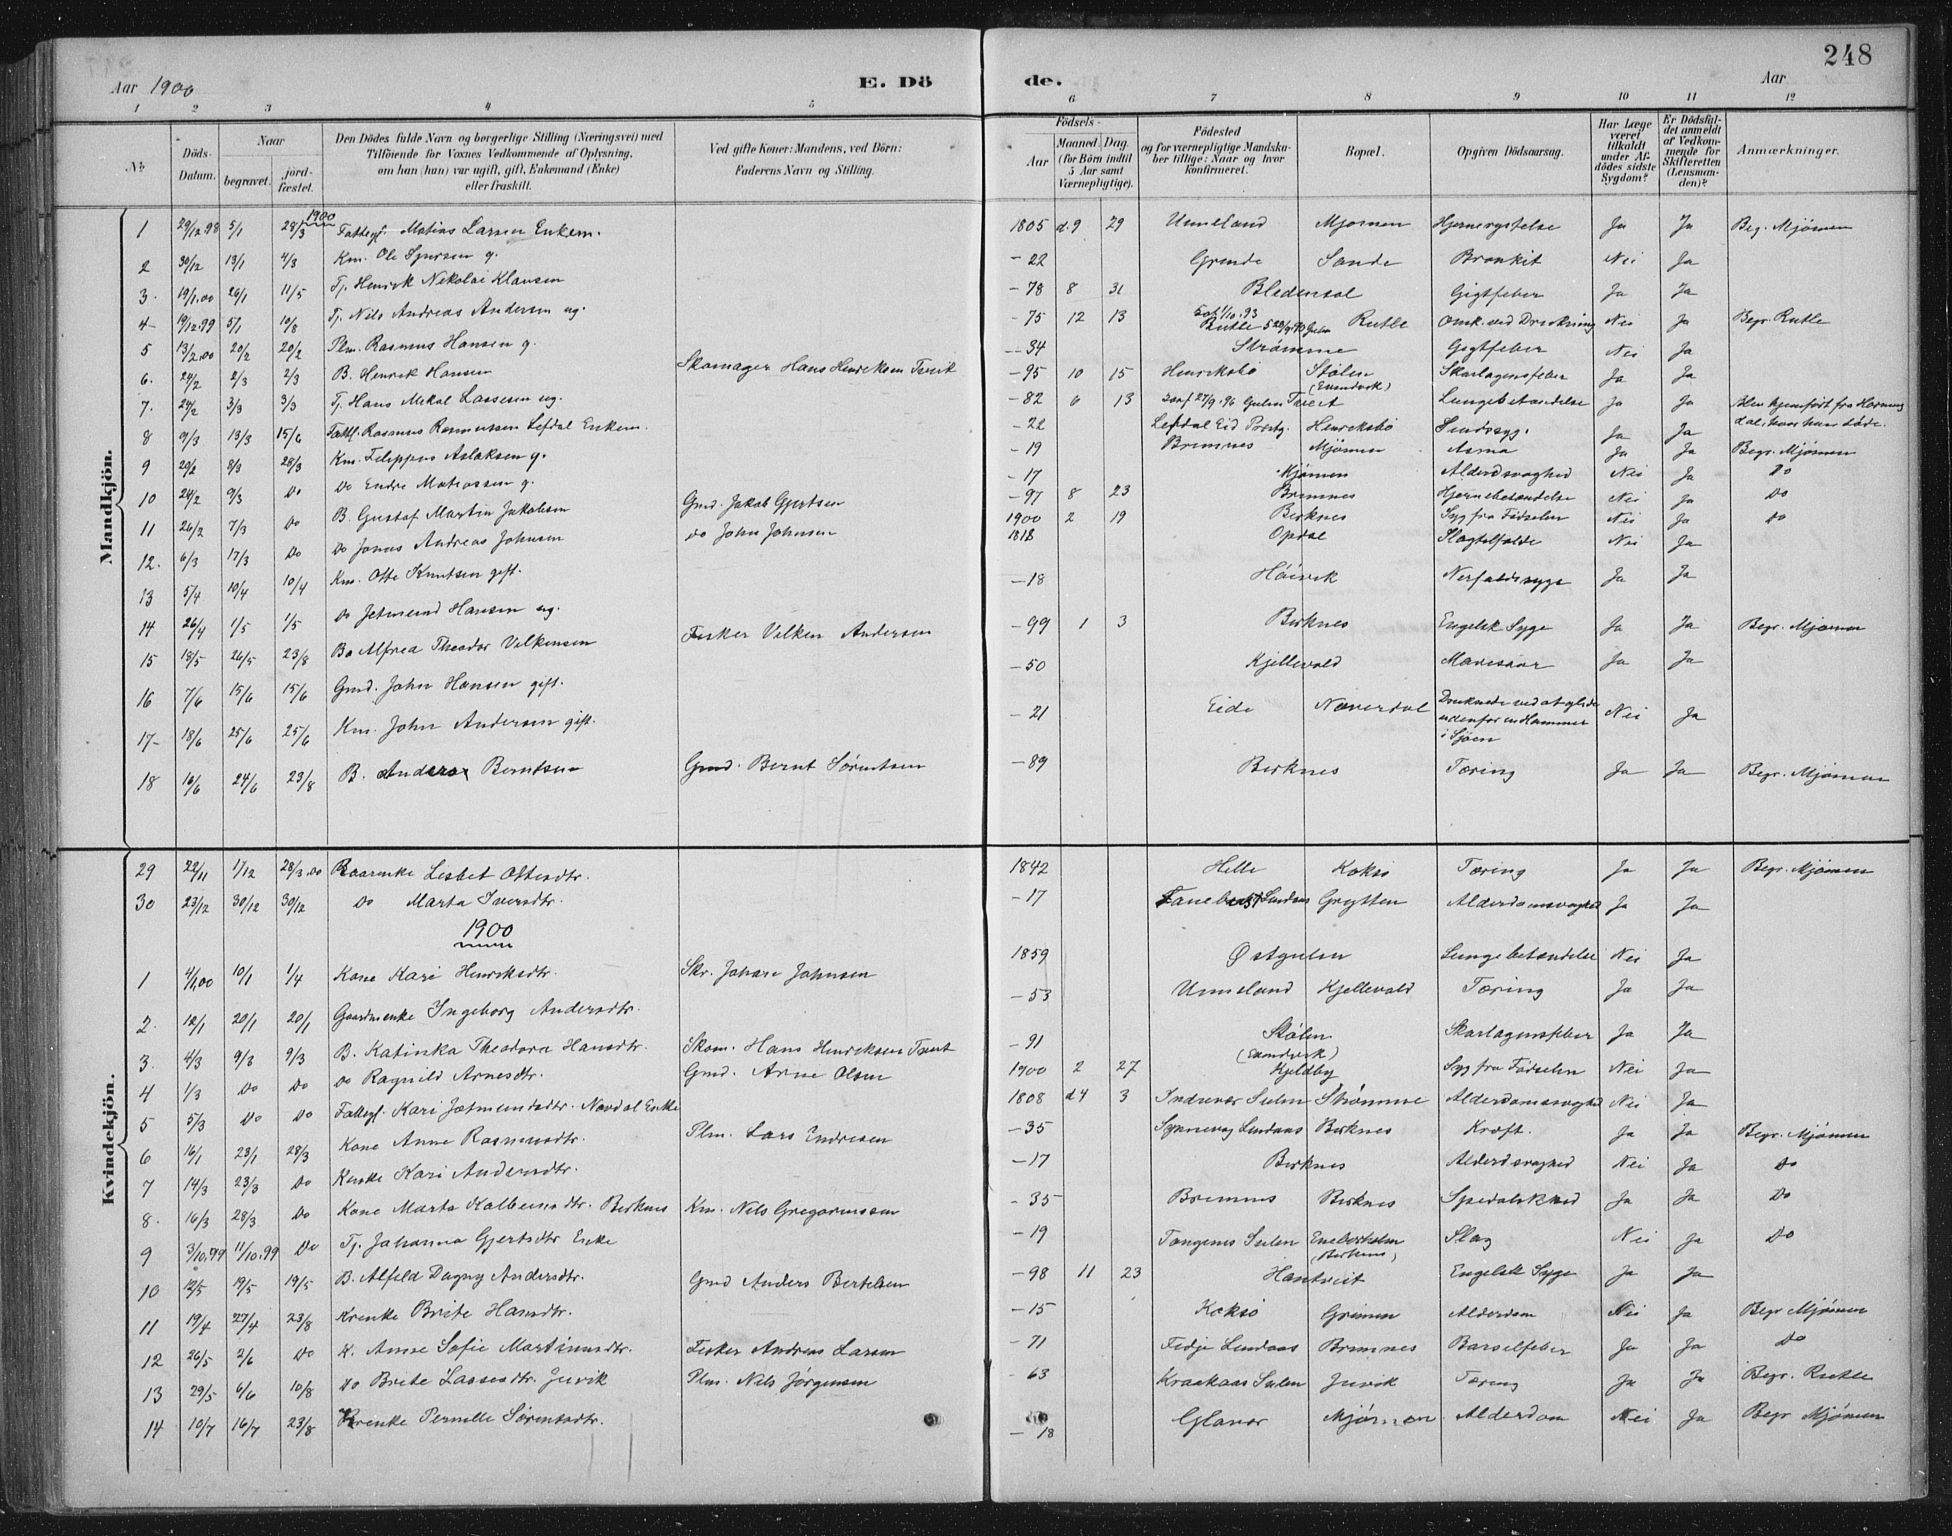 248
Aar 1900 E. Dö de. Aar
1 2 3 4 5 6 7 8 9 10 11 12
№
Döds-Datum.
Naar
begravet. jordfæstet.
Den Dödes fulde Navn og borgerlige Stilling (Næringsvei) med Tilföiende for Voxnes Vedkommende af Oplysning, om han (hun) var ugift, gift, Enkemand (Enke) eller fraskilt.
Ved gifte Koner: Mandens, ved Börn: Faderens Navn og Stilling.
Födsels-
Aar Maaned. Dag.
(for Börn indtil 5 Aar samt Værnepligtige).
Födested og for værnepligtige Mandskaber tillige: Naar og hvor konfirmeret.
Bopæl.
Opgiven Dödsaarsag.
Har Læge været tilkaldt under Afdödes sidste Sygdom?
Er Dödsfaldet anmeldt af Vedkommende for Skifteretten (Lensmanden)?
Anmærkninger.
Mandkjön.
1900
1 29/12.98 5/1 28/3 Fattigl. Matias Larsen Enkem. 1805 d.9 29 Unneland Mjømen Hjernerystelse Ja Ja Beg. Mjömen
2 30/12 13/1 4/3 Km. Ole Sjursen g. -22 Grinde Sande Bronkit Nei Ja
3. 19/1.00 26/1 11/5 Tj. Henrik Nikolai Klausen -78 8 31 Gigtfeber Ja Ja
4 19/12.99 5/1 10/8 Tj. Nils Andreas Andersen ug. -75 12 13 Rutle Rutle Omk. ved Drukning Nei Ja Begr. Rutle
5 13/2.00 20/2 20/2 Plm. Rasmus Hansen g. -34 Strømme Gigtfeber Nei Ja
6. 24/2 2/3 2/3 B. Henrik Hansen Skomager Hans Henriksen Tveit -95 10 15 Henriksbö Stølen (Eivindvik) Skarlagensfeber Ja Ja
7. 24/2 3/3 3/3 Tj. Hans Mikal Lassesen ug. -82 6 13 27/9.96 Gulen Tveit Lungebetændelse Ja Ja Blev hjemført fra Hornindal, hvor han døde.
8 9/3 13/3 15/6 Fattl. Rasmus Rasmussen Lefdal Enkem. -22 Lefdal Eid Henriksbö Sindssyg. Ja Ja
9 20/2 8/3 28/3 Km. Filippus Aslaksen g. -19 Brimnes Mjömen Asma Ja Ja Begr. Mjömen
10 24/2 9/3 Do Do Endre Matiassen g. -17 Mjømen Alderdsvaghed Nei Ja Do
11 26/2 7/3 Do B. Gustaf Martin Jakobsen Gmd. Jakob Gjertsen -97 8 23 Brimnes Hjernebetændelse Nei Ja Do
12. 6/3 17/3 Do Do Jonas Andreas Johnsen Do John Johnsen 1900 2 19 Birknes Syg fra Fødselen Nei Ja Do
13 5/4 10/4 10/4 Km. Otte Knutsen gift. 1818 Opdal Slagtilfælde Nei Ja
14 26/4 1/5 1/5 Do Jetmund Hansen ug. -18 Höivik Nerfaldssyge Ja Ja
15 18/5 26/5 23/8 B. Alfred Theodor Vilkensen Fisker Vilken Andersen -99 1 3 Birknes Engelsk Syge Ja Ja Begr. Mjømen
16 7/6 15/6 15/6 Gmd. John Hansen gift. -50 Kjellevold Mavesaar Ja Ja
17 18/6 25/6 25/6 Km. John Andersen gift. -21 Eide Næverdal Druknede ved at glide udenfor en Hammer i Sjøen Nei Ja
18 16/6 24/6 23/8 B. Anders Berntsen Gmd. Bernt Sørentsen -89 Birknes Tæring Ja Ja Begr. Mjømen
Kvindekjön.
29 22/11 1/12 28/3.00 Lisbet Ottesdtr. 1842 Hille Koksö Tæring Ja Ja Begr. Mjømen
30 23/12 30/12 30/12 Do Marta Iversdtr. -17 Lindaas Grytten Alderdomsvaghed Ja Ja
1900
1 4/1.00 10/1 1/4 Kone Kari Henriksdtr. Skr. Johan Johnsen 1859 Østgulen Lungebetændelse Nei Ja
2. 12/1 20/1 20/1 Gaardmenke Ingeborg Andersdtr. -53 Unneland Kjellevold Tæring Ja Ja
3. 4/3 9/3 9/3 B. Katinka Theodora Hansdtr. Skom. Hans Henriksen Tveit -91 Stølen (Eivindvik) Skarlagensfeber Ja Ja
4 1/3 Do Do Do Ragnild Arnesdtr. Gmd. Arne Olsen 1900 2 27 Kjeldby Syg fra Fødselen Nei Ja
5 5/3 Do Do Fattigl. Kari Jetmundsdtr. Nævdal Enke 1808 d4 3 Indrevær Sulen Strømme Alderdomsvaghed Nei Ja
6 16/1 23/1 28/3 Kone Anne Rasmusdtr. Plm. Lars Endresen -35 Lindaas Birknes Kræft. Ja Ja Begr. Mjømen
7 14/3 23/3 Do Kenke Kari Andersdtr. -17 Birknes Alderdsvaghed Nei Ja Do
8. 16/3 28/3 Do Kone Marta Kolbensdtr. Birknes Km. Nils Gregoriussen -35 Brimnes Birknes Spedalskhed Ja Ja Do
9 3/10.99 11/10.99 Do Tj. Johanna Gjertsdtr Enke -19 Tangenes Sulen Eneberholm (Birknes) Slag Nei Ja Do
10 12/5 19/5 19/5 B. Alfild Dagny Andersdtr. Gmd Anders Bertelsen -98 11 23 Hantveit Engelsk Syge Ja Ja
11 19/4 27/4 23/8 Krenke Brite Hansdtr. -15 Koksö Grimen Alderdom Nei Ja Begr Mjømen
12 26/5 2/6 Do K. Anne Sofie Martinusdtr. Fisker Andreas Larsen -71 Fedje Lindaas Brimnes Barselfeber Ja Ja Do
13 29/5 6/6 10/8 Do Brite Lassesdtr. Juvik Plm. Nils Jørgensen -63 Kraakaas Sulen Juvik Tæring Ja Ja Begr. Rutle
14 10/7 16/7 23/8 Krenke Pernille Sørensdtr. -18 Glavær Mjømen Alderdom Nei Ja Begr Mjömen